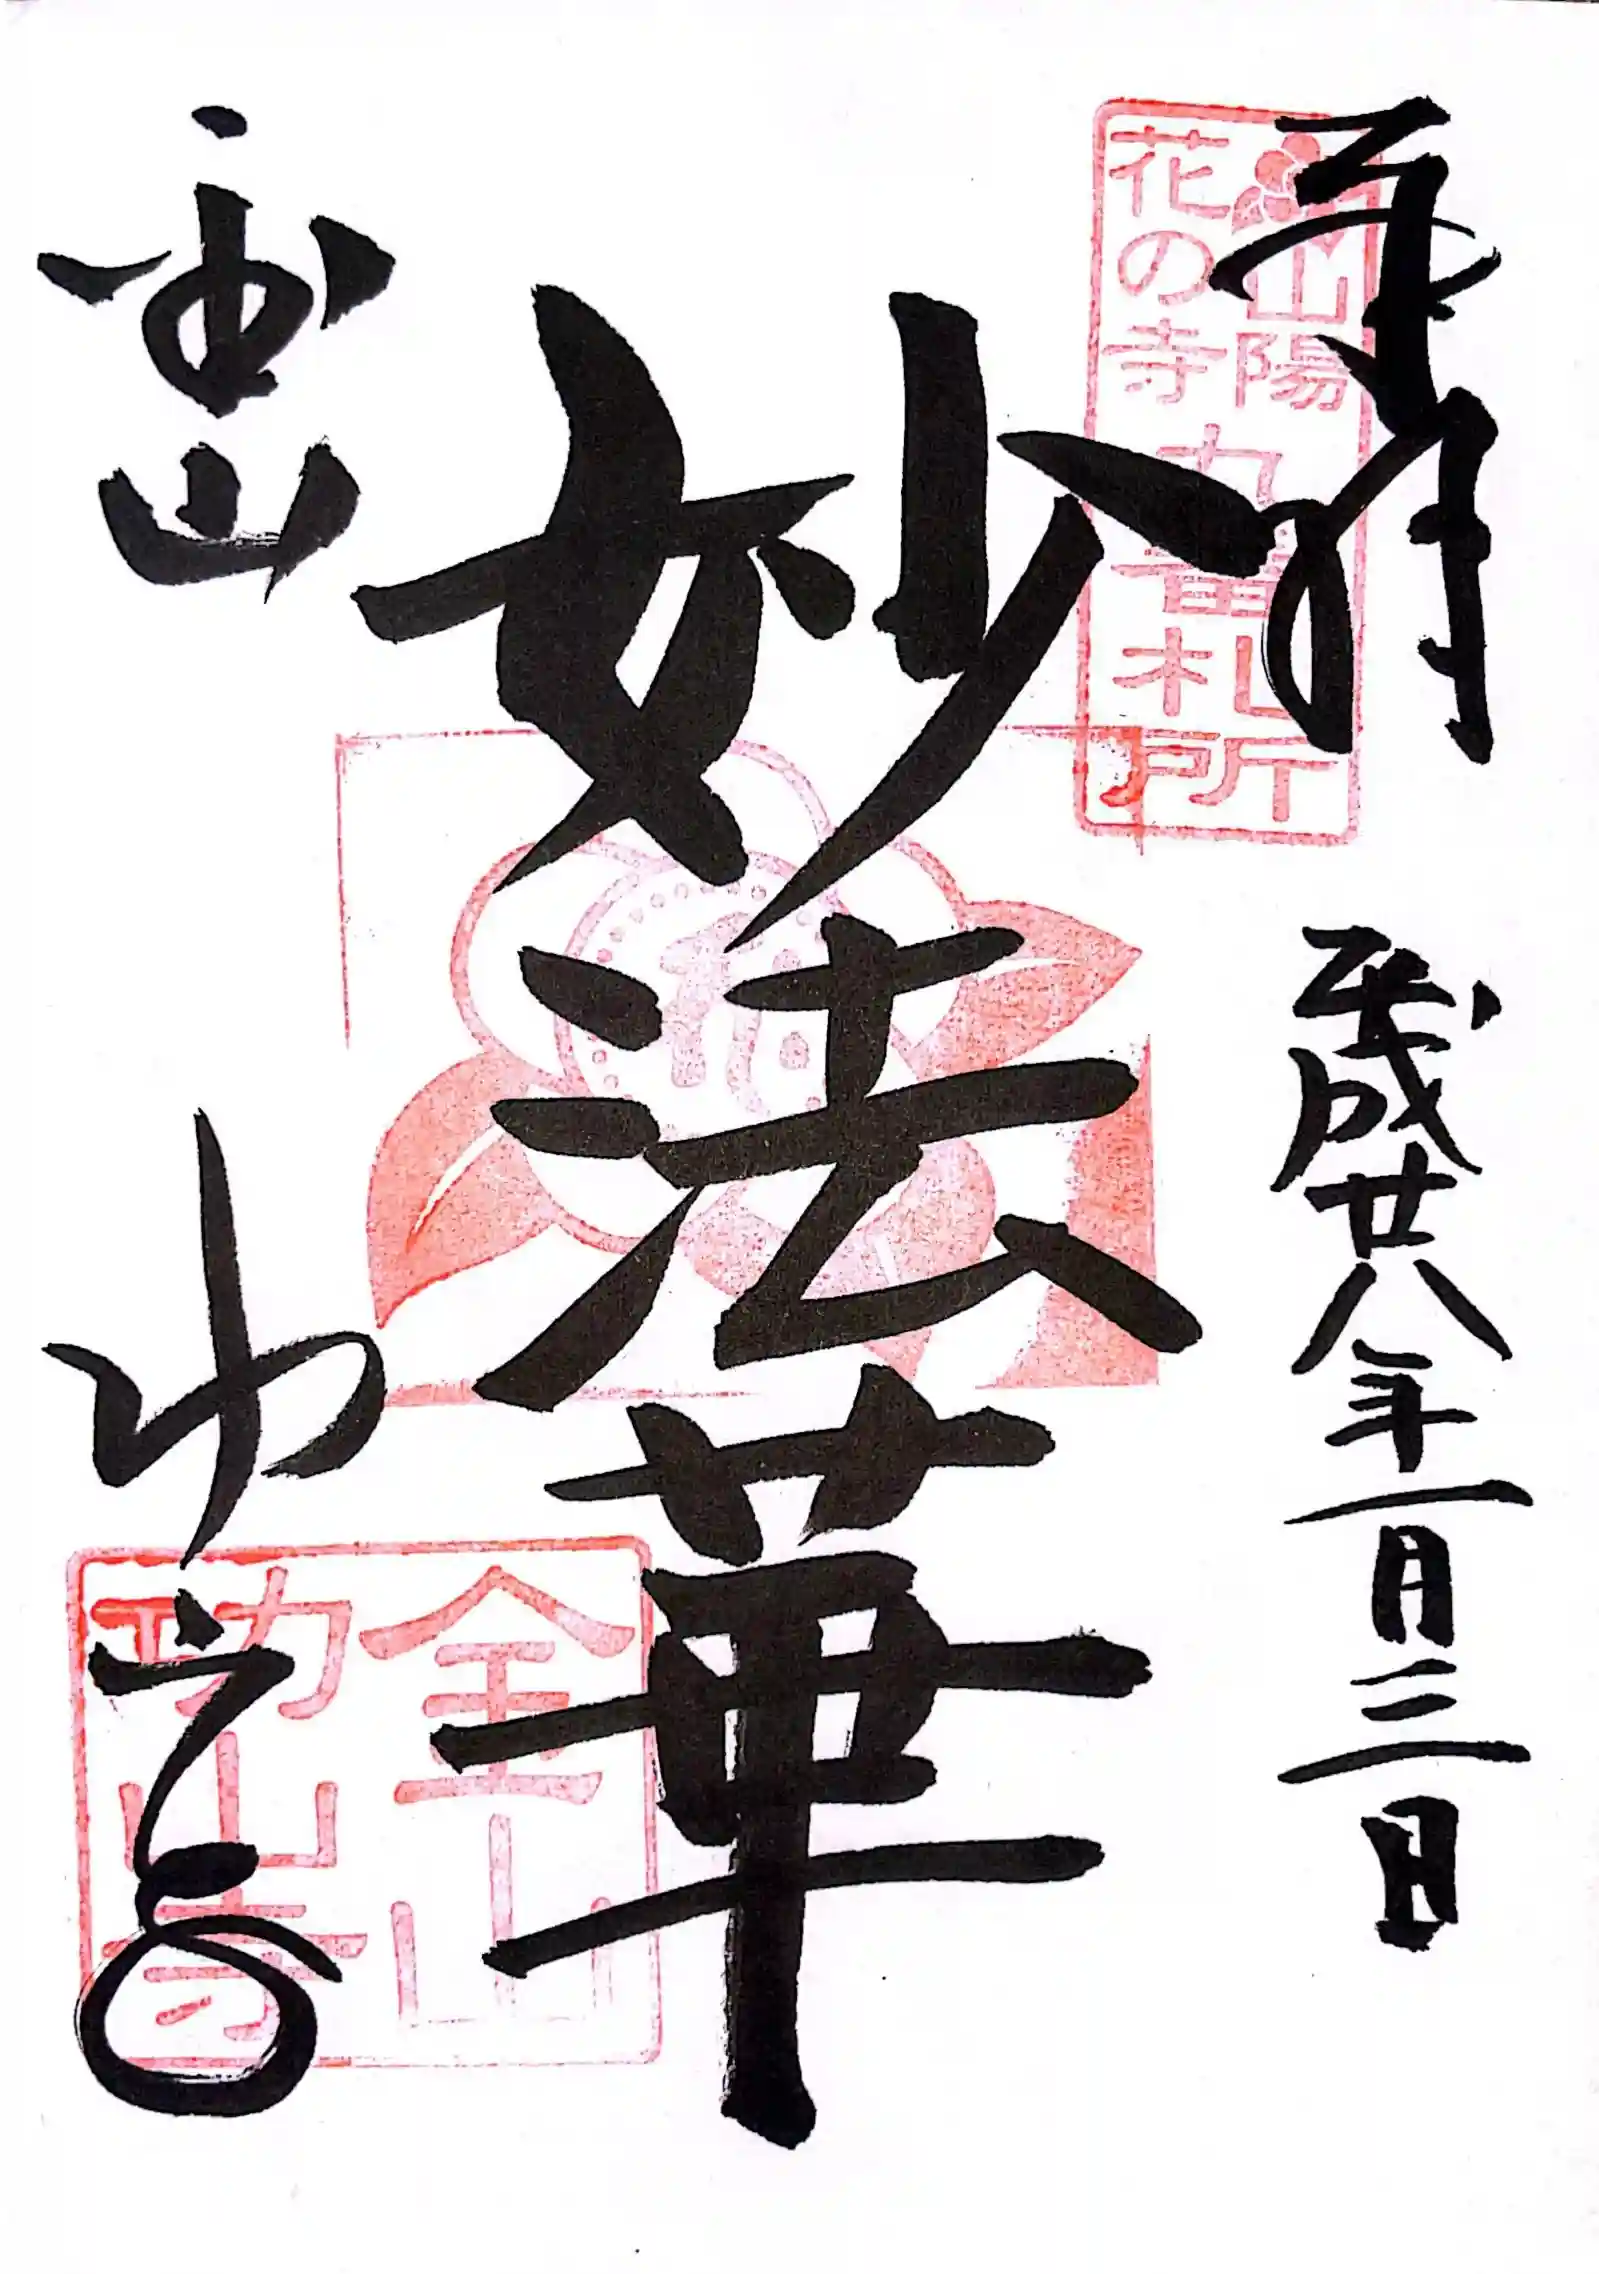 奉拝
平成廿八年一月三日
山陽
花の寺
九番札所
妙法華
金山
功山寺
金山
功山寺